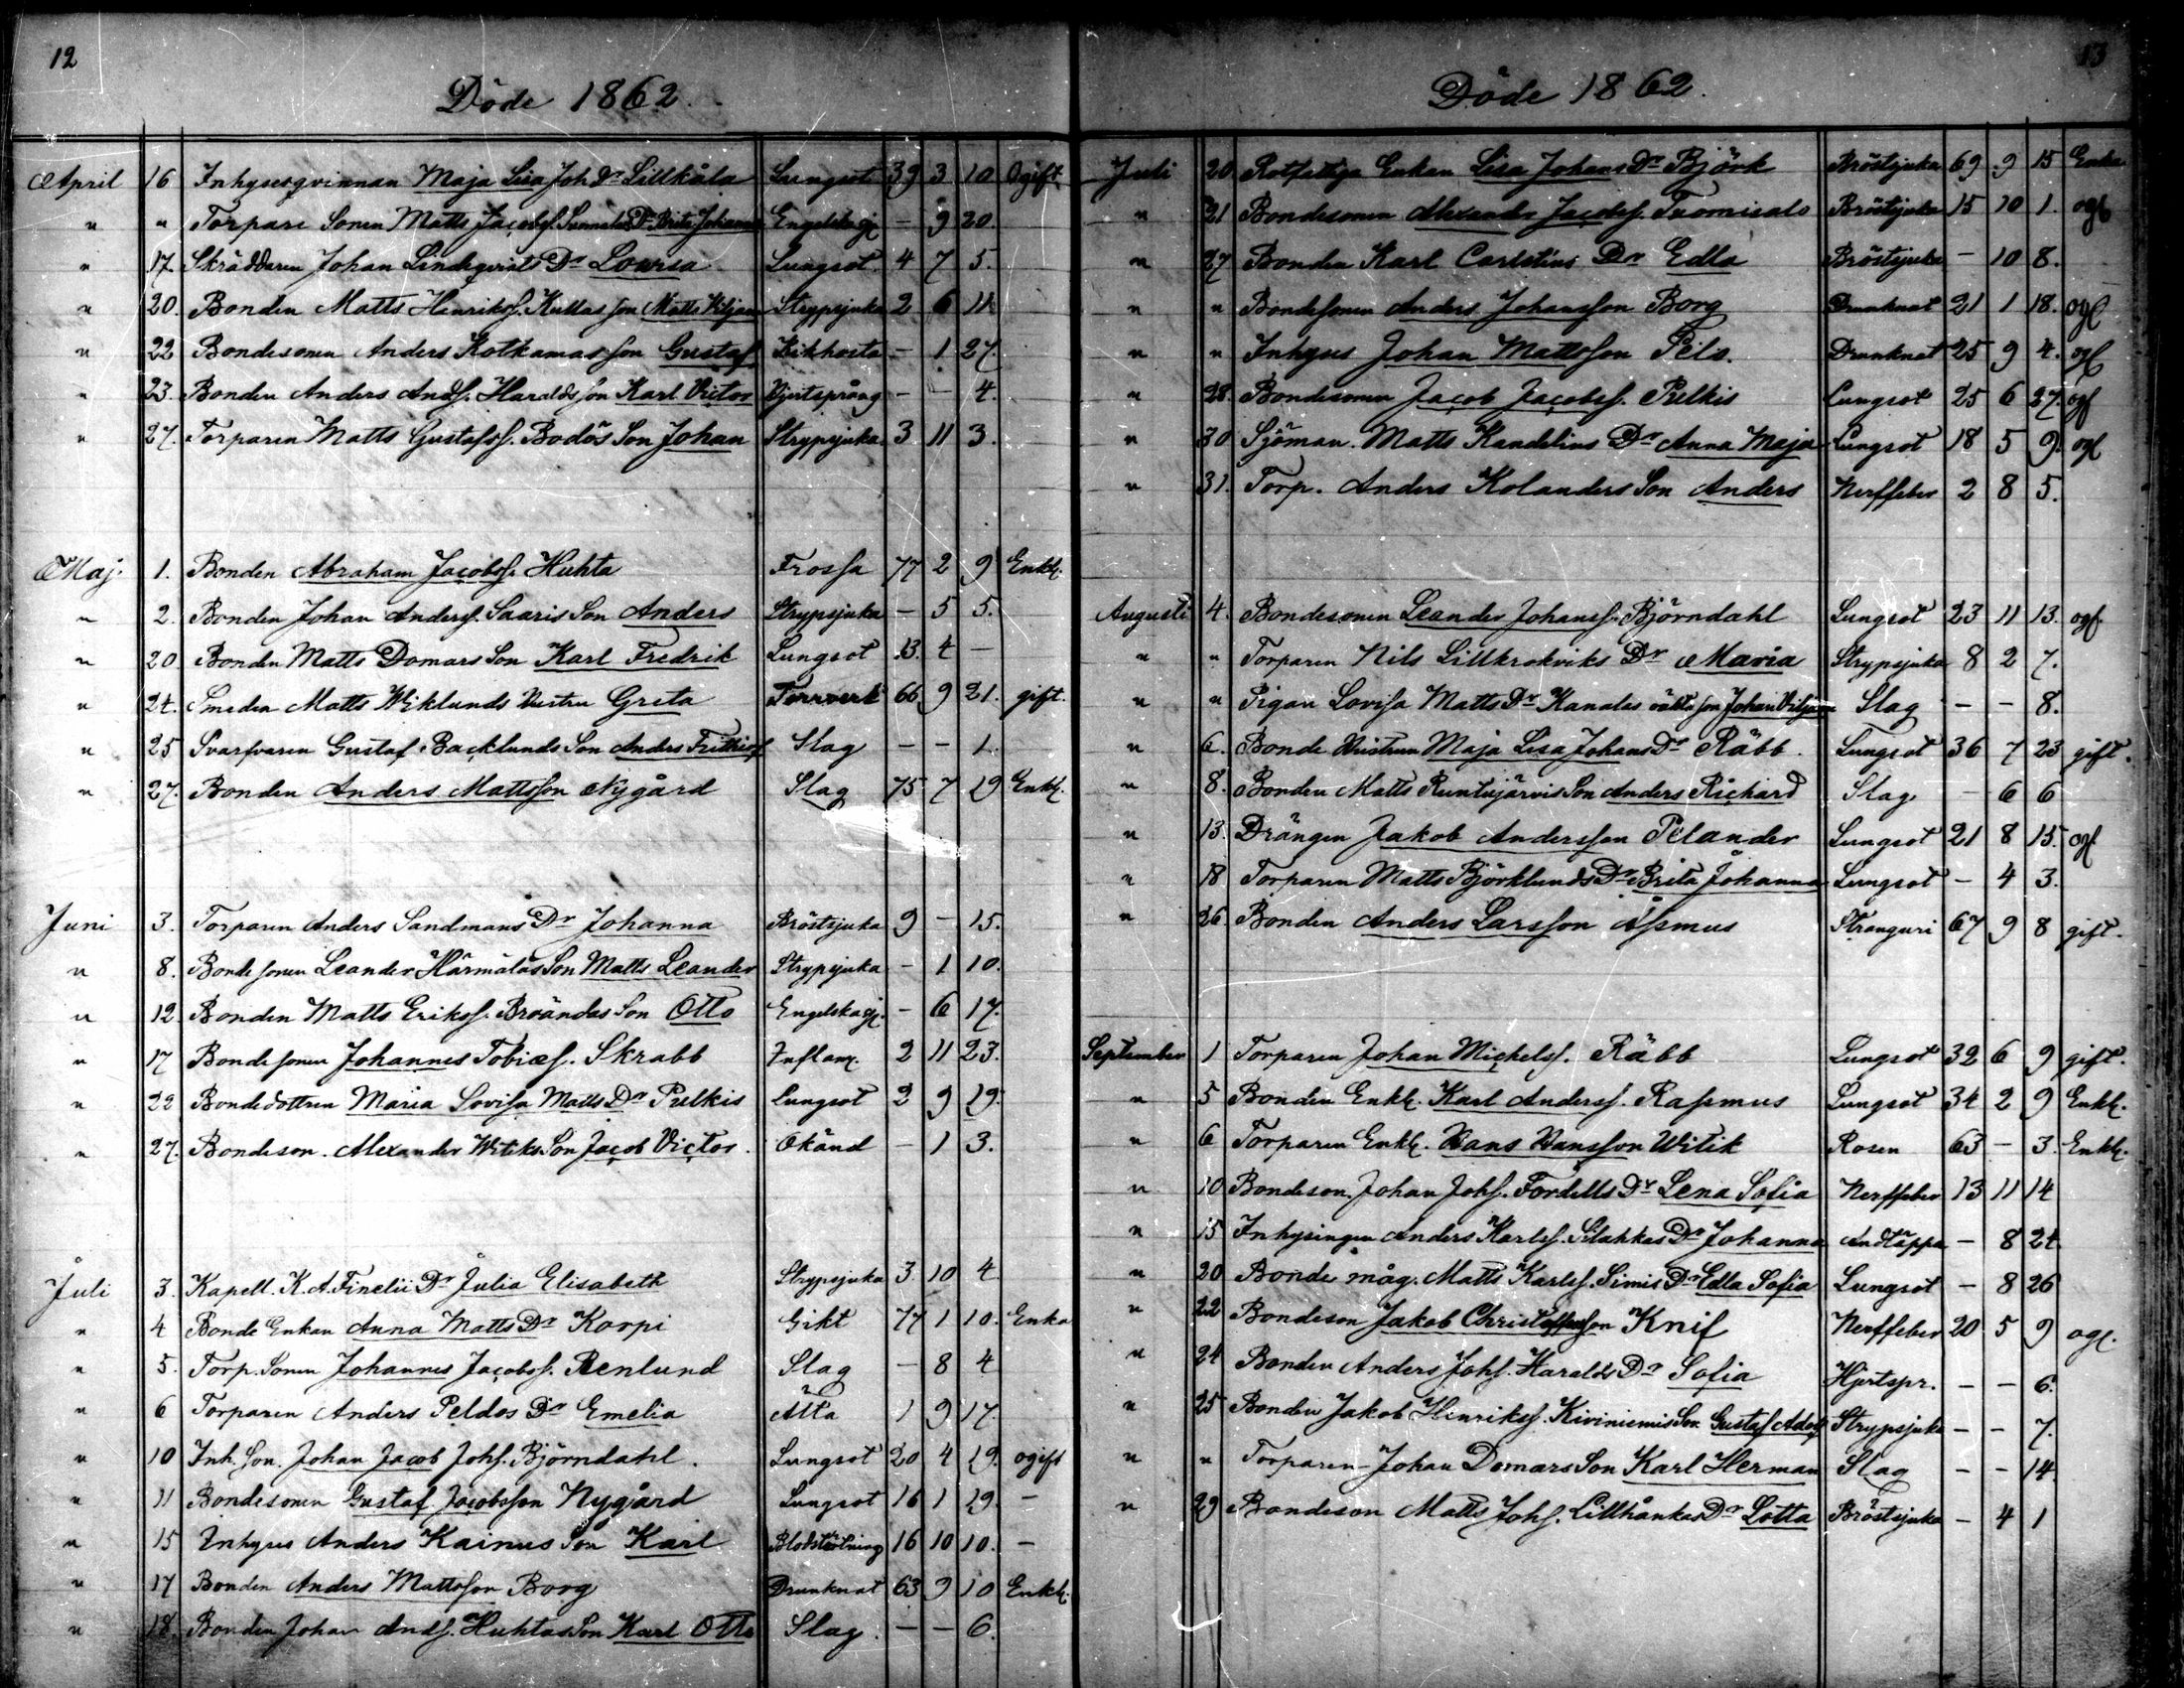 12
Döde 1862.
April 16 Inhysesqvinnan Maja Lisa Joh Dr Lillkåla Lungsot 39 3 10 Ogift
" " Torpare Sonen Matts Jacobss. Dr Brita Johanna Engelska sj. - 9 20.
" 17. Skräddaren Johan Lindqvists Dr Lovisa Lungsot 4 7 5.
" 20. Bonden Matts Henrikss. Kullas son Matts Viljam Strypsjuka 2 6 11
" 22 Bondesonen Anders Kotkamas son Gustaf Kikhosta - 1 27.
" 23. Bonden Anders Ands. Haralds son Karl Victor Hjertsprång - - 4.
" 27. Torparen Matts Gustafss. Bodös Son Johan Strypsjuka 3 11 3.
Maj. 1. Bonden Abraham Jacobss. Huhta Frossa 77 2 9 Enkl.
" 2. Bonden Johan Anderss. Saaris Son Anders Strypsjuka - 5 5.
" 20 Bonden Matts Domars Son Karl Fredrik Lungsot 13. 4 -
" 24. Smeden Matts Wiklunds Hustru Greta 66 9 21. gift.
" 25 Svarfvaren Gustaf Backlunds Son Anders Frithiof Slag - - 1.
" 27. Bonden Anders Mattsson Nygård Slag 75 7 19 Enkl.
Juni 3. Torparen Anders Sandmans Dr Johanna Bröstsjuka 9 - 15.
" 8. Bondesonen Leander Härmälas Son Matts Leander Strypsjuka - 1 10.
" 12. Bonden Matts Erikss. Broändas Son Otto Engelska sj. - 6 17.
" 17 Bondesonen Johannes Tobiæs. Skrabb Inflam. 2 11 23.
" 22 Bondedottren Maria Lovisa Matts Dr Pulkis Lungsot 2 9 19.
" 27. Bondeson. Alexander Witiks Son Jacob Victor. Okänd - 1 3.
Juli 3. Kapell. K. A. Finelii Dr Julia Elisabeth Strypsjuka 3 10 4
" 4 Bonde Enkan Anna Matts Dr Korpi Gikt 77 1 10. Enka
" 5. Torp. Sonen Johannes Jacobss. Renlund Slag - 8 4
" 6 Torparen Anders Peldos Dr Emelia Ålta 1 9 17.
" 10 Inh. Son. Johan Jacob Johs. Björndahl. Lungsot 20 4 19. ogift
" 11 Bondesonen Gustaf Jacobsson Nygård Lungsot 16 1 29. -
" 15 Inhyses Anders Kainus Son Karl Blodstörtning 16 10 10. -
" 17 Bonden Anders Mattsson Borg Drunknat 63 9 10 Enkl.
" 18. Bonden Johan Ands. Huhtas Son Karl Otto Slag. - - 6.
13
Döde 1862.
Juli 20. Rotfattiga Enkan Lisa Johans Dr Björk Bröstsjuka 69 9 15 Enka
" 21 Bondesonen Alexander Jacobss. Bröstsjuka 15 10 1. ogf
" 27 Bonden Karl Carlströms Dr Edla Bröstsjuka - 10 8.
" " Bondesonen Anders Johansson Borg Drunknat 21 1 18. ogf
" " Inhyses Johan Mattsson Pels. Drunknat 25 9 4. ogf
" 28. Bondesonen Jacob Jacobss. Pulkis Lungsot 25 6 27. ogf
" 30 Sjöman. Matts Kandelins Dr Anna Maja Lungsot 18 5 9. ogf
" 31. Torp. Anders Kolanders Son Anders Nerffeber 2 8 5.
Augusti 4. Bondesonen Leander Johanss. Björndahl Lungsot 23 11 13. ogf.
" " Torparen Nils Lillkrokviks Dr Maria Strypsjuka 8 2 7.
" " Pigan Lovisa Matts Dr Kanalas oäkta son Johan Viljam Slag - - 8.
" 6. Bonde Hustrun Maja Lisa Johans Dr Räbb. Lungsot 36 7 23 gift.
" 8. Bonden Matts Runtujärvis Son Anders Richard Slag - 6 6
" 13. Drängen Jakob Andersson Pelander Lungsot 21 8 15. ogf
" 18 Torparen Matts Björklunds Dr Brita Johanna Lungsot - 4 3.
" 26. Bonden Anders Larsson Åsmus Stranguri 67 9 8 gift.
September 1 Torparen Johan Mickelss. Räbb Lungsot 32 6 9 gift.
" 5 Bonden Enkl. Karl Anderss. Rasmus Lungsot 34 2 9 Enkl.
" 6 Torparen Enkl. Hans Hansson Witik Rosen 63 - 3. Enkl.
" 10 Bondeson. Johan Johs. Fordells Dr Lena Sofia Nerffeber 13 11 14
" 15 Inhysingen Anders Karlss. Slahkas Dr Johanna Andtäppa - 8 24.
" 20 Bonde måg. Matts Karlss. Simis Dr Edla Sofia Lungsot - 8 26
" 22 Bondeson Jakob Christoffersson Knif Nerffeber 20 5 9 ogf.
" 24 Bonden Anders Johs. Haralds Dr Sofia Hjertspr. - - 6.
" 25 Bonden Jakob Henrikss. Kiviniemis Son. Gustaf Adolf Strypsjuka - - 7.
" " Torparen Johan Domars Son Karl Herman Slag - - 14.
" 29 Bondeson Matts Johs. Lillhånkas Dr Lotta Bröstsjuka - 4 1